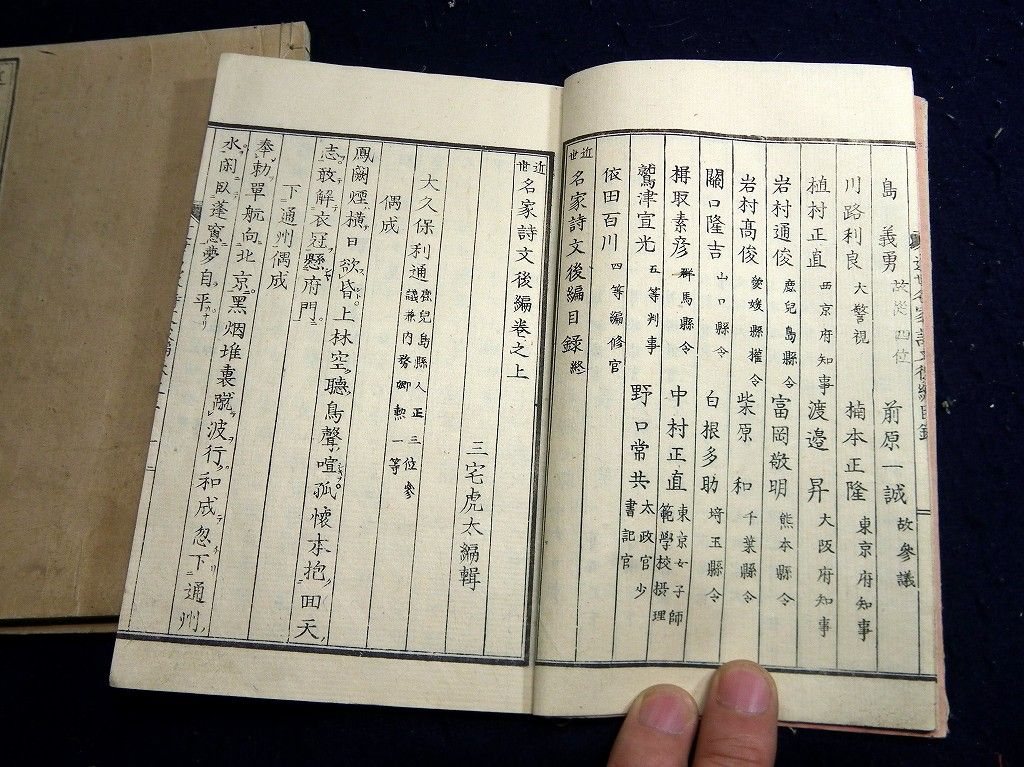 島 義勇 故從四位 前原一誠 故參議
川路利良 大警視 楠本正隆 東京府知事
植村正直 西京府知事 渡邉 昇 大阪府知事
岩村通俊 鹿兒島縣令 富岡敬明 熊本縣令
岩村髙俊 愛媛縣權令 柴原 和 千葉縣令
關口隆吉 山口縣令 白根多助 埼玉縣令
楫取素彦 群馬縣令 中村正直 東京女子師範學校摂理
鷲津宣光 五等判事 野口常共 太政官少書記官
依田百川 四等編修官
近世名家詩文後編目録 終
近世名家詩文後編巻之上
三宅虎太編輯
大久保利通 鹿兒島縣人正三位參議兼内務卿勲一等
偶成
鳳闕煙横日欲昏上林空聽鳥聲喧孤懷本抱囬天
志敢解衣冠懸府門
下通州偶成
奉勅單航向北京黑烟堆裏蹴波行和成忽下通州
水閑臥蓬窓夢自平